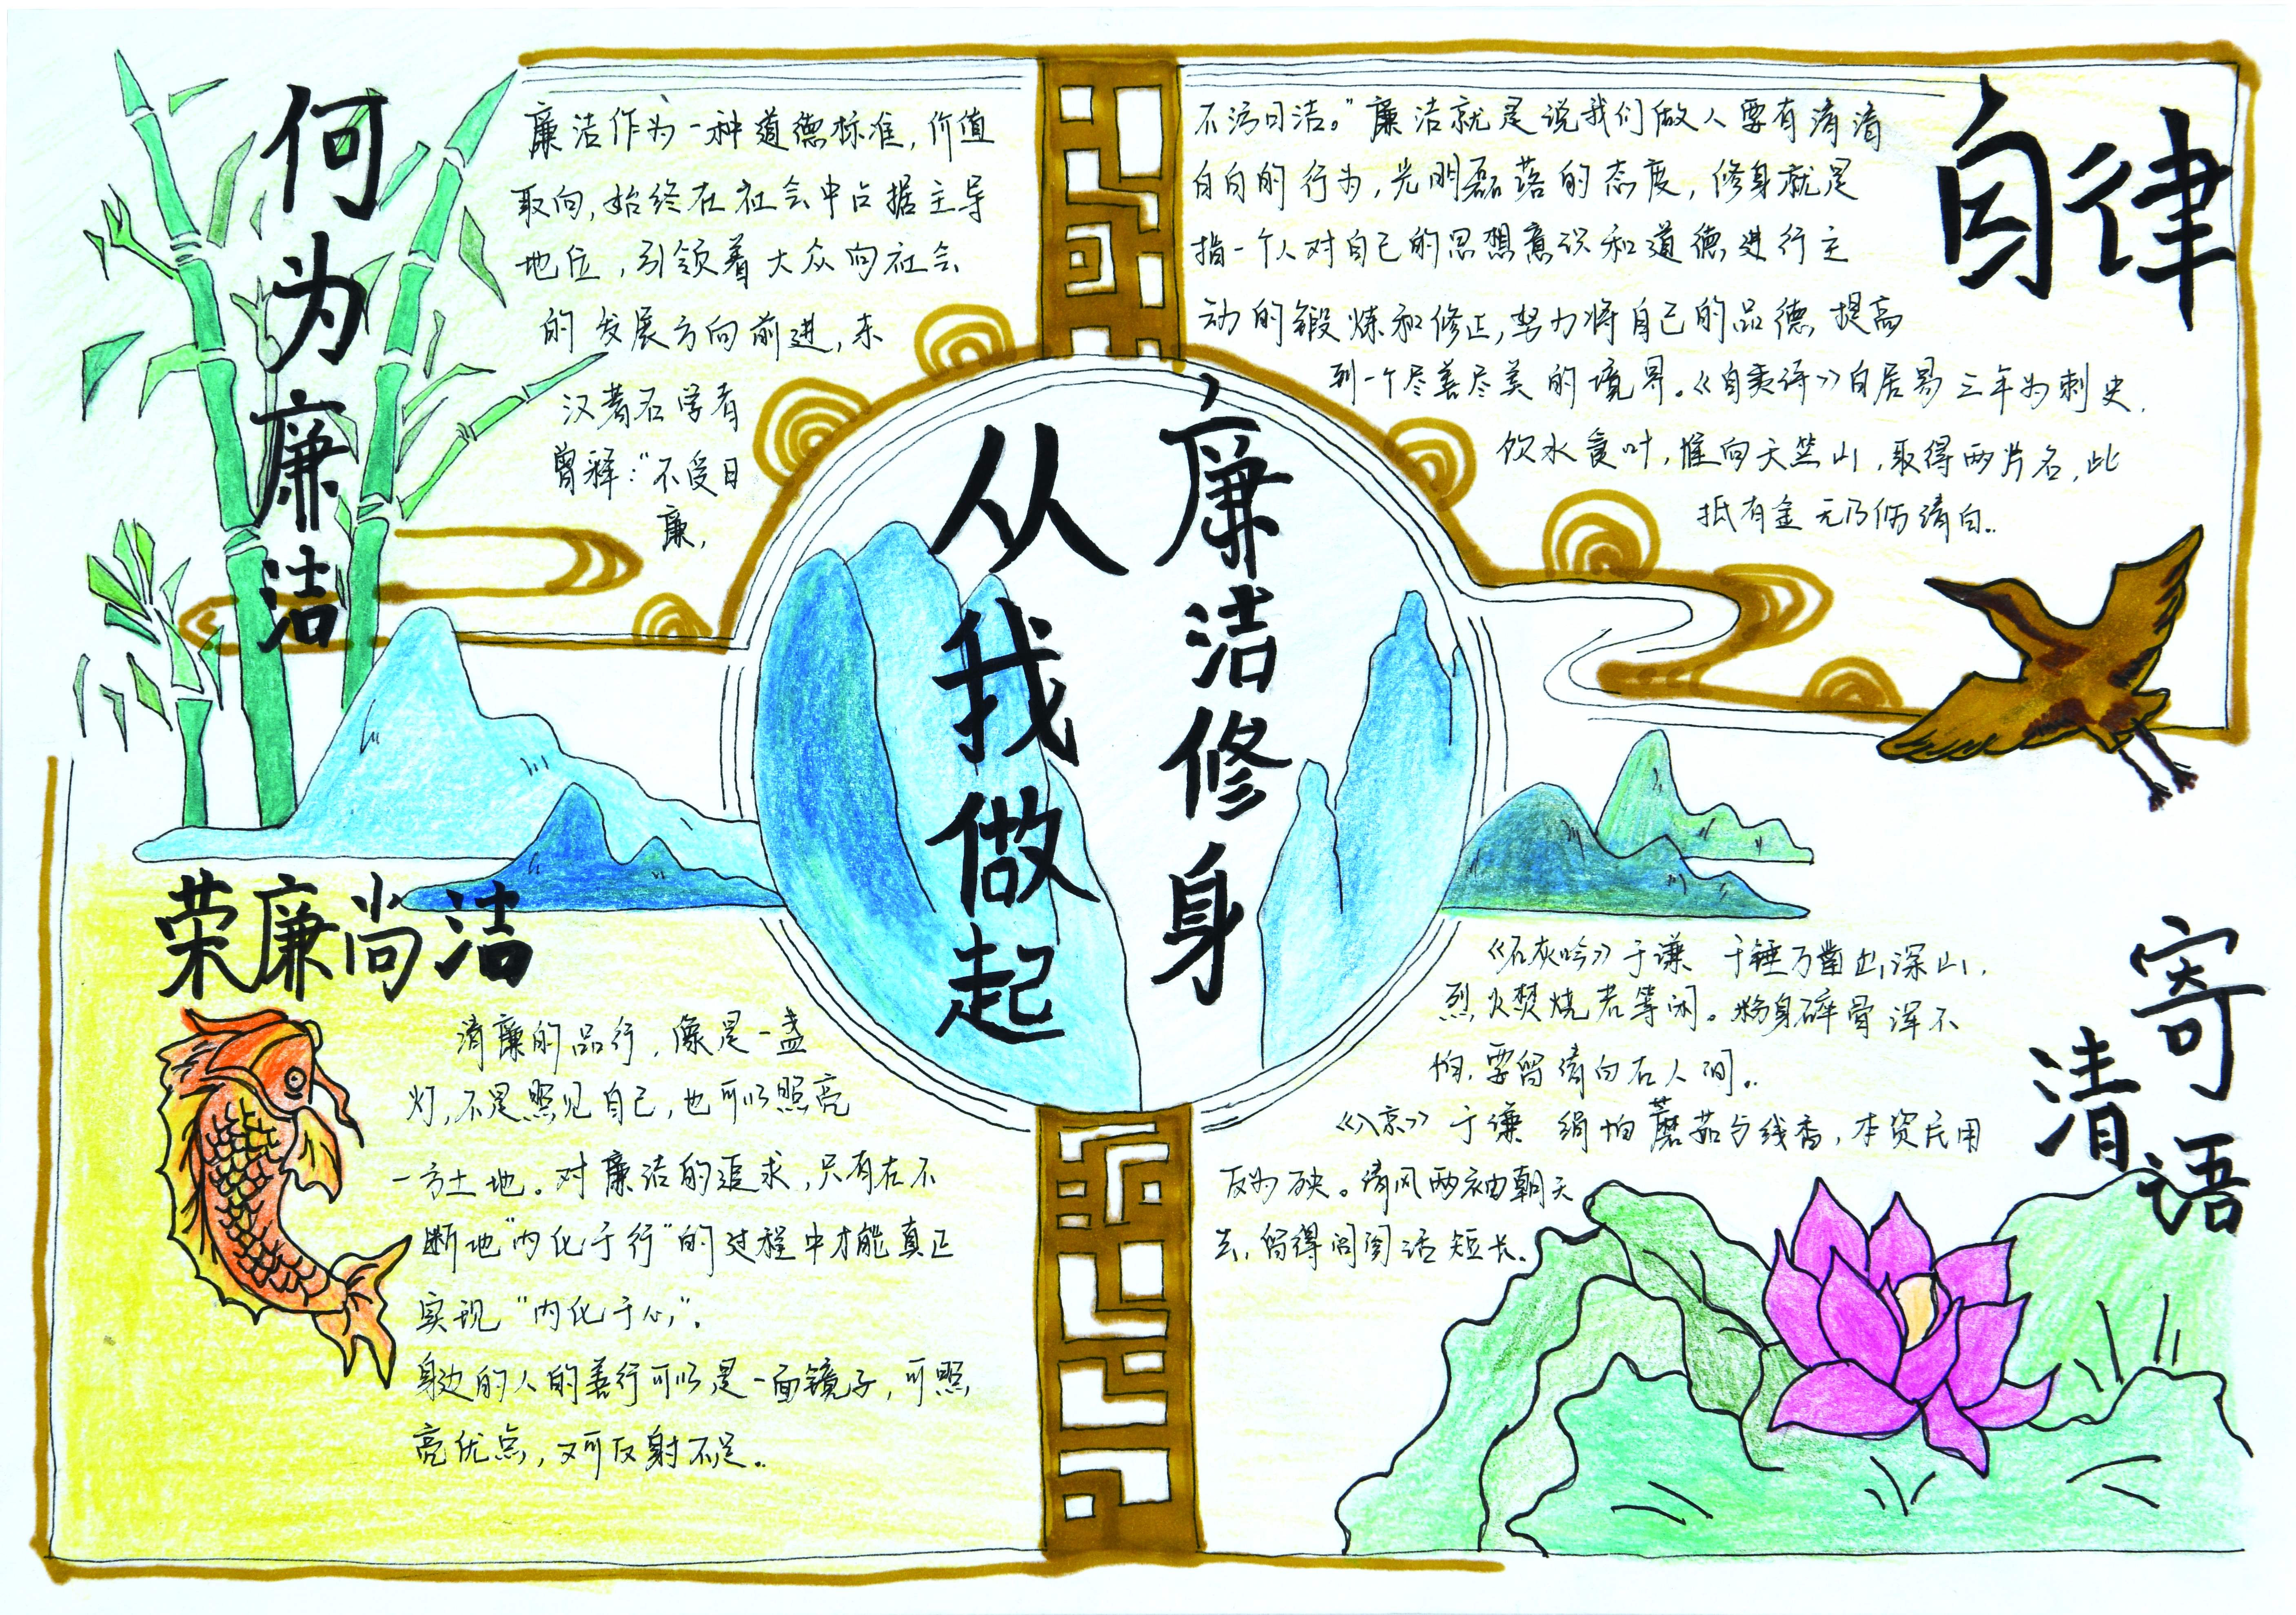 廉洁修身
从我做起
何为廉洁
廉洁作为一种道德标准，价值
取向，始终在社会中占据主导
地位，引领着大众向社会
的发展方向前进，东
汉著名学者
曾释：“不受曰
廉，
自律
不污曰洁。”廉洁就是说我们做人要有清清
白白的行为，光明磊落的态度，修身就是
指一个人对自己的思想意识和道德进行主
动的锻炼和修正，努力将自己的品德提高
到一个尽善尽美的境界。《自责诗》白居易 三年为刺史，
饮水食叶，惟向天竺山，取得两片石，此
抵有金 无乃伤清白。
荣廉尚洁
清廉的品行，像是一盏
灯，不是照见自己，也可以照亮
一方土地。对廉洁的追求，只有在不
断地“内化于行”的过程中才能真正
实现“内化于心”。
身边的人的善行可以是一面镜子，可照
亮优点，又可反射不足。
寄语
清
《石灰吟》于谦 千锤万凿出深山，
烈火焚烧若等闲。粉身碎骨浑不
怕，要留清白在人间。
《入京》 于谦 绢帕蘑菇与线香，本资民用
反为殃。清风两袖朝天
去，留得闾阎话短长。